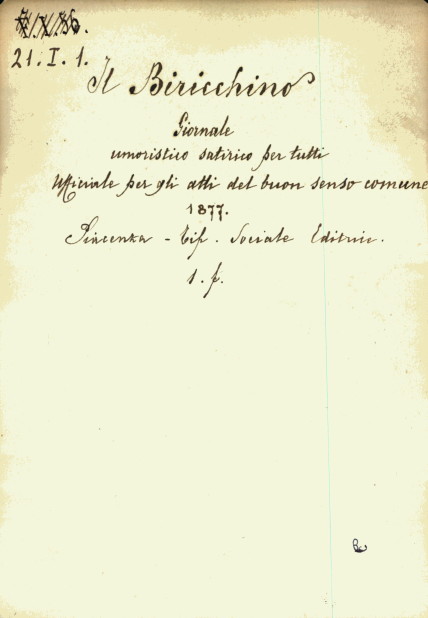 21. I. 1.
Il Biricchino
Giornale
umoristico satirico per tutti
Ufficiale per gli atti del buon senso comune
1877.
Piacenza - Tip. Sociale Editrice.
1. f.